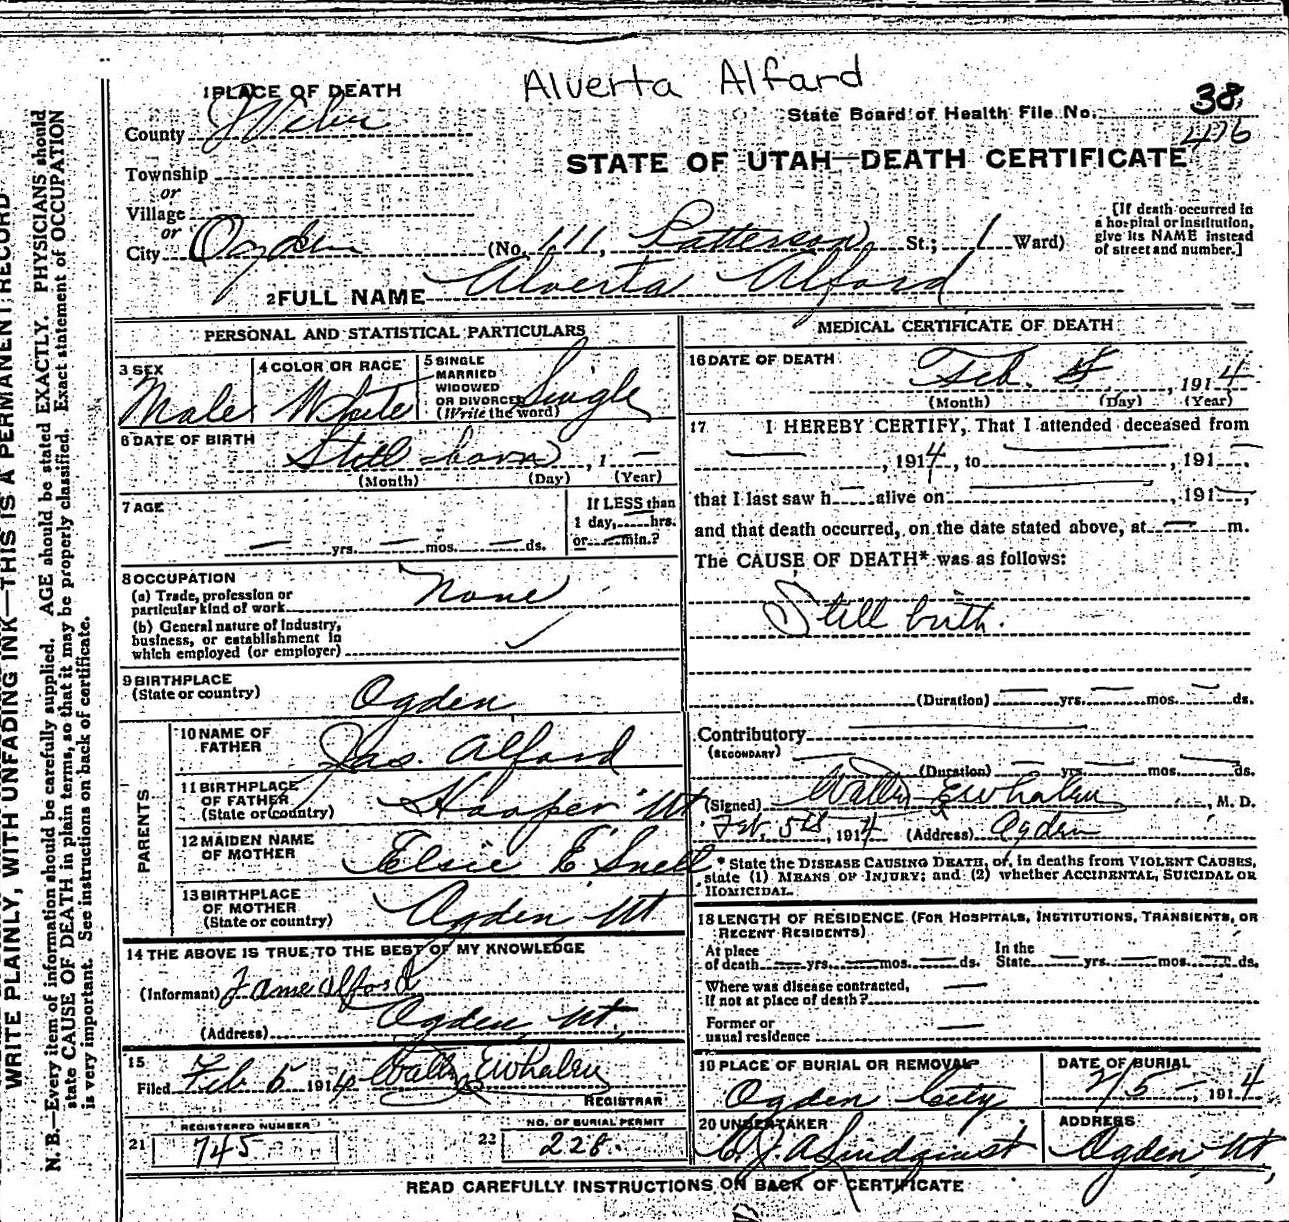 Alverta Alfard
1 PLACE OF DEATH
County Weber
State Board of Health File No. 38
476
STATE OF UTAH—DEATH CERTIFICATE
Township
or
Village
or
City Ogden (No. 111, Patterson St.; 1 Ward)
[If death occurred in
a hospital or institution,
give its NAME instead
of street and number.]
2 FULL NAME Alverta Alford
PERSONAL AND STATISTICAL PARTICULARS
3 SEX
Male
4 COLOR OR RACE
White
5 SINGLE
MARRIED
WIDOWED
OR DIVORCED
(Write the word)
Single
6 DATE OF BIRTH
Still born, 1 —
(Month) (Day) (Year)
7 AGE
— yrs. — mos. — ds.
If LESS than
1 day, hrs.
or — min.?
8 OCCUPATION
(a) Trade, profession or
particular kind of work None
(b) General nature of industry,
business, or establishment in
which employed (or employer) ✓
9 BIRTHPLACE
(State or country)
Ogden
PARENTS
10 NAME OF
FATHER
Jas. Alford
11 BIRTHPLACE
OF FATHER
(State or country)
Hooper Ut
12 MAIDEN NAME
OF MOTHER
Elsie E Snell
13 BIRTHPLACE
OF MOTHER
(State or country)
Ogden Ut
14 THE ABOVE IS TRUE TO THE BEST OF MY KNOWLEDGE
(Informant) Jame Alford
(Address) Ogden, Ut,
15
Filed Feb 5 1914 Walter E Whalen
REGISTRAR
21
REGISTERED NUMBER
745
22
NO. OF BURIAL PERMIT
228.
MEDICAL CERTIFICATE OF DEATH
16 DATE OF DEATH
Feb. 5, 1914
(Month) (Day) (Year)
17 I HEREBY CERTIFY, That I attended deceased from
—, 1914, to —, 191—
that I last saw h— alive on —, 191—
and that death occurred, on the date stated above, at — m.
The CAUSE OF DEATH* was as follows:
Still birth.
(Duration) — yrs. — mos. — ds.
Contributory —
(SECONDARY)
(Duration) — yrs. — mos. — ds.
(Signed) Walter E Whalen, M. D.
Feb. 5th, 1914 (Address) Ogden
* State the DISEASE CAUSING DEATH, or, in deaths from VIOLENT CAUSES,
state (1) MEANS OF INJURY; and (2) whether ACCIDENTAL, SUICIDAL OR
HOMICIDAL.
18 LENGTH OF RESIDENCE (FOR HOSPITALS, INSTITUTIONS, TRANSIENTS, OR
RECENT RESIDENTS)
At place
of death — yrs. — mos. — ds.
In the
State — yrs. — mos. — ds.
Where was disease contracted,
if not at place of death? —
Former or
usual residence —
19 PLACE OF BURIAL OR REMOVAL
Ogden City
DATE OF BURIAL
2/5, 1914
20 UNDERTAKER
ADDRESS
Ogden, Ut,
READ CAREFULLY INSTRUCTIONS ON BACK OF CERTIFICATE
WRITE PLAINLY, WITH UNFADING INK—THIS IS A PERMANENT RECORD
N. B.—Every item of information should be carefully supplied. AGE should be stated EXACTLY. PHYSICIANS should
state CAUSE OF DEATH in plain terms, so that it may be properly classified. Exact statement of OCCUPATION
is very important. See instructions on back of certificate.